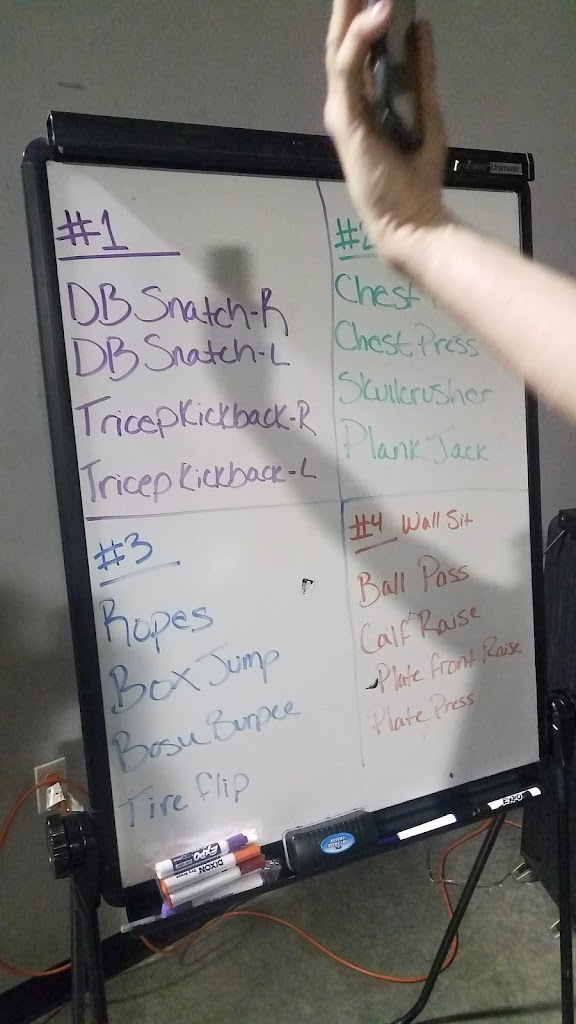 #1
DB Snatch-R
DB Snatch-L
Tricep Kickback-R
Tricep Kickback-L
#2
Chest
Chest Press
Skullcrusher
Plank Jack
#3
Ropes
Box Jump
Bosu Burpee
Tire flip
#4 Wall Sit
Ball Pass
Calf Raise
Plate front Raise
Plate Press
EXPO
DIXON
EXPO